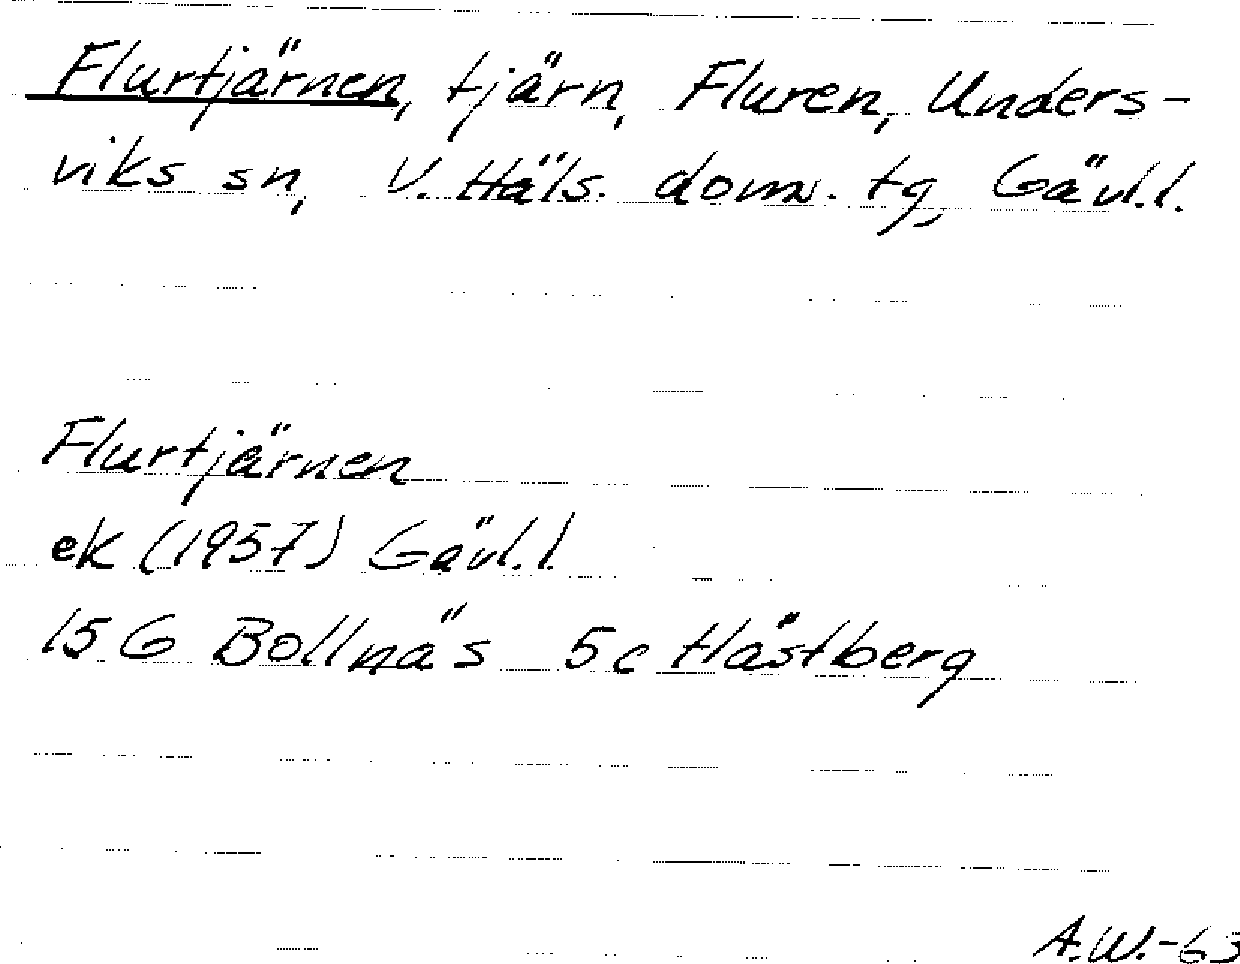 Flurtjärnen, tjärn, Fluren, Unders-
viks sn, V. Häls. doms. tg, Gävl.l.
Flurtjärnen
ek (1957) Gävl.l.
15 G Bollnäs 5c Håstberg
A.W.-63